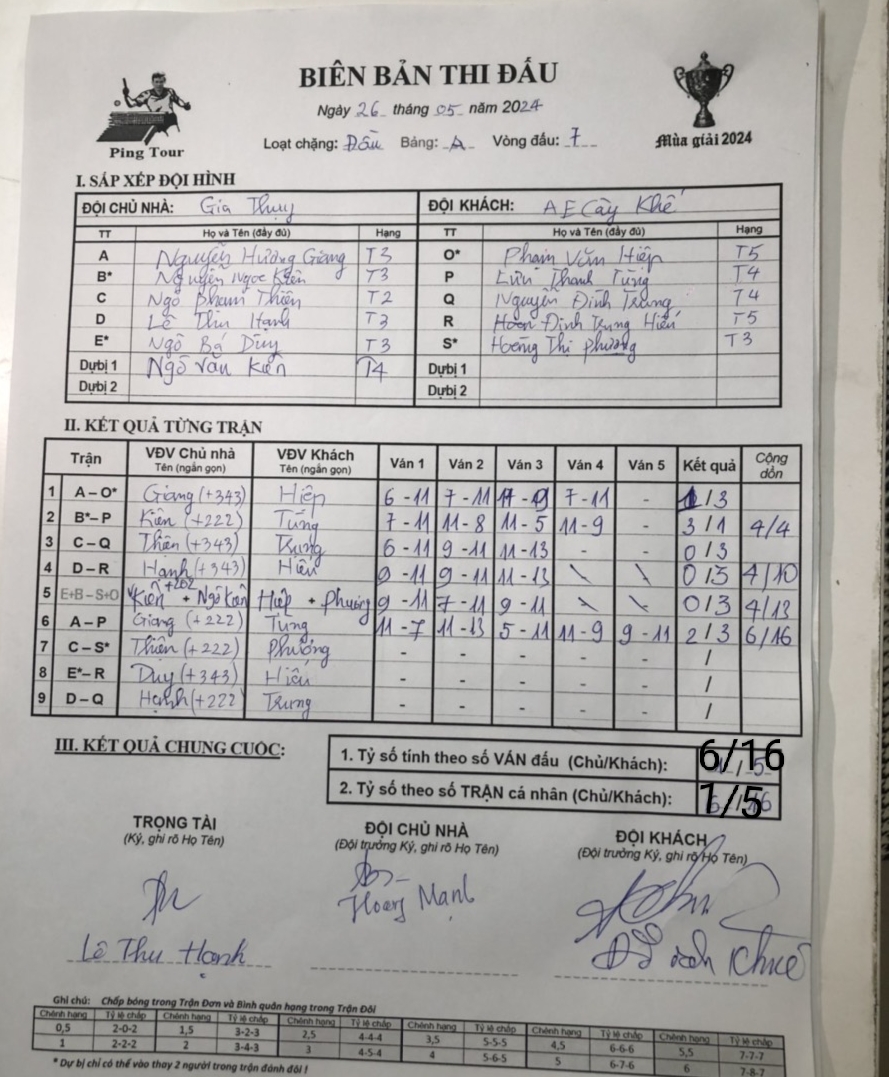 BIÊN BẢN THI ĐẤU
Ping Tour
Ngày 26 tháng 05 năm 2024
Loạt chặng: Đầu Bảng: A Vòng đấu: 7
Mùa giải 2024
I. SẮP XẾP ĐỘI HÌNH
ĐỘI CHỦ NHÀ: Gia Thụy ĐỘI KHÁCH: AE Cây Khế
TT Họ và Tên (đầy đủ) Hạng TT Họ và Tên (đầy đủ) Hạng
A Nguyễn Hương Giang T3 O* Phạm Văn Hiệp T5
B* Nguyễn Ngọc Kiên T3 P Lưu Thanh Tùng T4
C Ngô Phạm Thiên T2 Q Nguyễn Đình Trung T4
D Lê Thu Hạnh T3 R Hoàn Đình Trung Hiếu T5
E* Ngô Bá Duy T3 S* Hoàng Thị Phương T3
Dự bị 1 Ngô Văn Kiên T4 Dự bị 1
Dự bị 2 Dự bị 2
II. KẾT QUẢ TỪNG TRẬN
Trận VĐV Chủ nhà Tên (ngắn gọn) VĐV Khách Tên (ngắn gọn) Ván 1 Ván 2 Ván 3 Ván 4 Ván 5 Kết quả Cộng dồn
1 A – O* Giang (+343) Hiệp 6 - 11 7 - 11 11 - 9 7 - 11 - 1 / 3
2 B* – P Kiên (+222) Tùng 7 - 11 11 - 8 11 - 5 11 - 9 - 3 / 1 4/4
3 C – Q Thiên (+343) Trung 6 - 11 9 - 11 11 - 13 - - 0 / 3
4 D – R Hạnh (+343) Hiếu 9 - 11 9 - 11 11 - 13 \ \ 0 / 3 4/10
5 E+B – S+O Kiên +202 + Ngô Kiên Hiệp + Phương 9 - 11 7 - 11 9 - 11 \ \ 0 / 3 4/13
6 A – P Giang (+222) Tùng 11 - 7 11 - 13 5 - 11 11 - 9 9 - 11 2 / 3 6/16
7 C – S* Thiên (+222) Phương - - - - - /
8 E* – R Duy (+343) Hiếu - - - - - /
9 D – Q Hạnh (+222) Trung - - - - - /
III. KẾT QUẢ CHUNG CUỘC:
1. Tỷ số tính theo số VÁN đấu (Chủ/Khách): 6/16
2. Tỷ số theo số TRẬN cá nhân (Chủ/Khách): 1/5
TRỌNG TÀI ĐỘI CHỦ NHÀ ĐỘI KHÁCH
(Ký, ghi rõ Họ Tên) (Đội trưởng Ký, ghi rõ Họ Tên) (Đội trưởng Ký, ghi rõ Họ Tên)
Lê Thu Hạnh Hoàng Mạnh
Ghi chú: Chấp bóng trong Trận Đơn và Bình quân hạng trong Trận Đôi
Chênh hạng Tỷ lệ chấp Chênh hạng Tỷ lệ chấp Chênh hạng Tỷ lệ chấp Chênh hạng Tỷ lệ chấp Chênh hạng Tỷ lệ chấp Chênh hạng Tỷ lệ chấp
0,5 2-0-2 1,5 3-2-3 2,5 4-4-4 3,5 5-5-5 4,5 6-6-6 5,5 7-7-7
1 2-2-2 2 3-4-3 3 4-5-4 4 5-6-5 5 6-7-6 6 7-8-7
* Dự bị chỉ có thể vào thay 2 người trong trận đánh đôi !